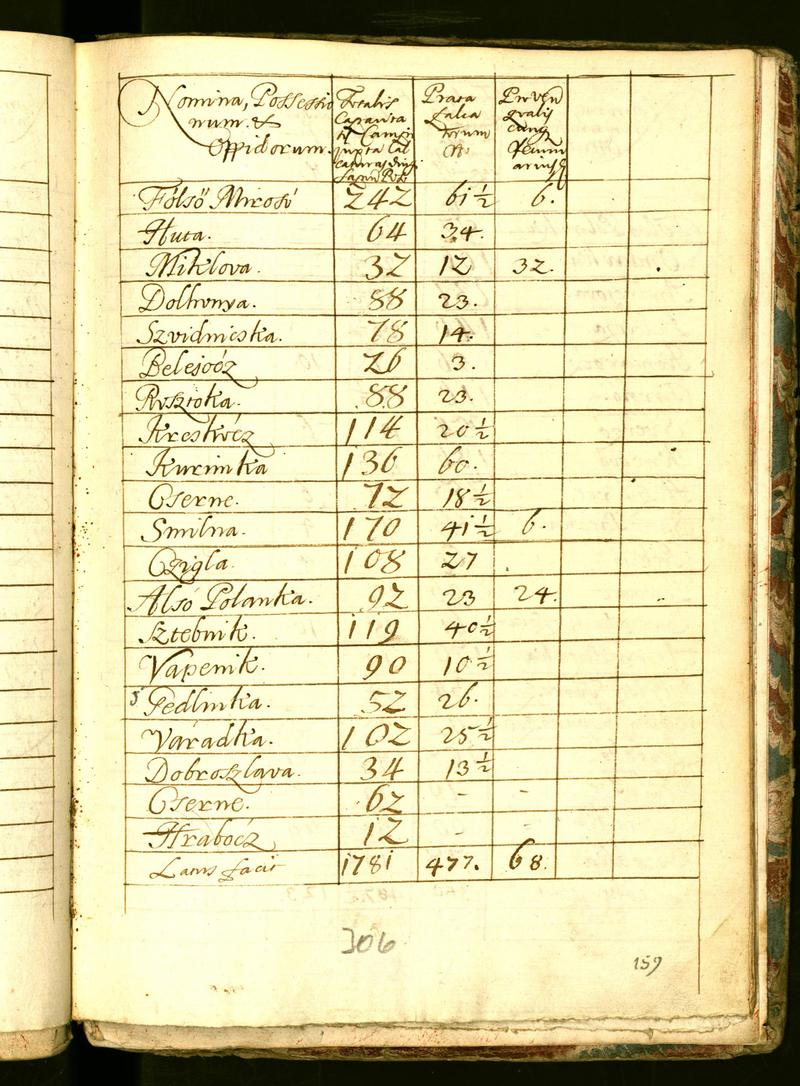 Nomina, Possessio
num. &
Oppidorum.
Prata
falca
torum
Proven
Fölsö Mirosó 242 61½ 6.
Huta. 64 34.
Miklova. 32 12 32.
Dolhonya. 88 23.
Szvidnicska. 78 14.
Belejócz 26 3.
Rosztoka. 88 23.
Krestvócz 114 20½
Kurimka 130 60.
Cserne. 72 18½
Smilna. 170 41½ 6.
Czigla. 108 27
Alsó Polanka. 92 23 24.
Sztebnik. 119 40½
Vapenik. 90 10½
Pedlinka. 52 26.
Váradka. 102 25½
Dobroszlava. 34 13½
Cserne. 62 - -
Hrabócz 12 - -
Latus facit 1781 477. 68.
306
159